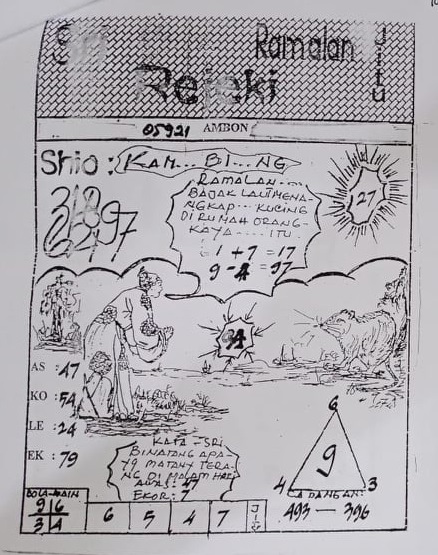 Ramalan
Jitu
Rejeki
05921 AMBON
Shio : KAM...BI...NG
RAMALAN...
BAJAK LAUT MENA-
NGKAP... KUCING
DI RUMAH ORANG-
KAYA.....ITU.
1 + 7 = 17
9 - 4 = 97
27
AS : 47
KO : 54
LE : 24
EK : 79
KATA - SRI
BINATANG APA-
YG MATANY TERA-
NG DI MALAM HARI
EKOR: 7
6
9
4 3
CADANGAN:
493 — 396
BOLA-MAIN
9 6
3 4
6 5 4 7 JITU